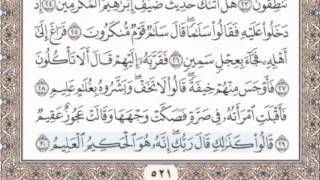 تَنطِقُونَ ۝٢٣ هَلْ أَتَىٰكَ حَدِيثُ ضَيْفِ إِبْرَٰهِيمَ ٱلْمُكْرَمِينَ ۝٢٤ إِذْ
دَخَلُوا۟ عَلَيْهِ فَقَالُوا۟ سَلَـٰمًا ۖ قَالَ سَلَـٰمٌ قَوْمٌ مُّنكَرُونَ ۝٢٥ فَرَاغَ إِلَىٰٓ
أَهْلِهِۦ فَجَآءَ بِعِجْلٍ سَمِينٍ ۝٢٦ فَقَرَّبَهُۥٓ إِلَيْهِمْ قَالَ أَلَا تَأْكُلُونَ
۝٢٧ فَأَوْجَسَ مِنْهُمْ خِيفَةً ۖ قَالُوا۟ لَا تَخَفْ ۖ وَبَشَّرُوهُ بِغُلَـٰمٍ عَلِيمٍ ۝٢٨
فَأَقْبَلَتِ ٱمْرَأَتُهُۥ فِى صَرَّةٍ فَصَكَّتْ وَجْهَهَا وَقَالَتْ عَجُوزٌ عَقِيمٌ
۝٢٩ قَالُوا۟ كَذَٰلِكِ قَالَ رَبُّكِ ۖ إِنَّهُۥ هُوَ ٱلْحَكِيمُ ٱلْعَلِيمُ ۝٣٠
٥٢١